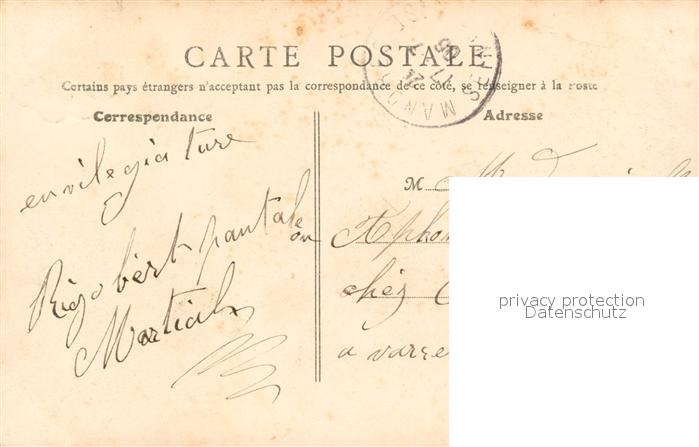 CARTE POSTALE
Certains pays étrangers n'acceptant pas la correspondance de ce côté, se renseigner à la Poste
Correspondance
en vilegiature
Rigobert pantale
on
Martial
Adresse
M
chez
à varre
privacy protection
Datenschutz